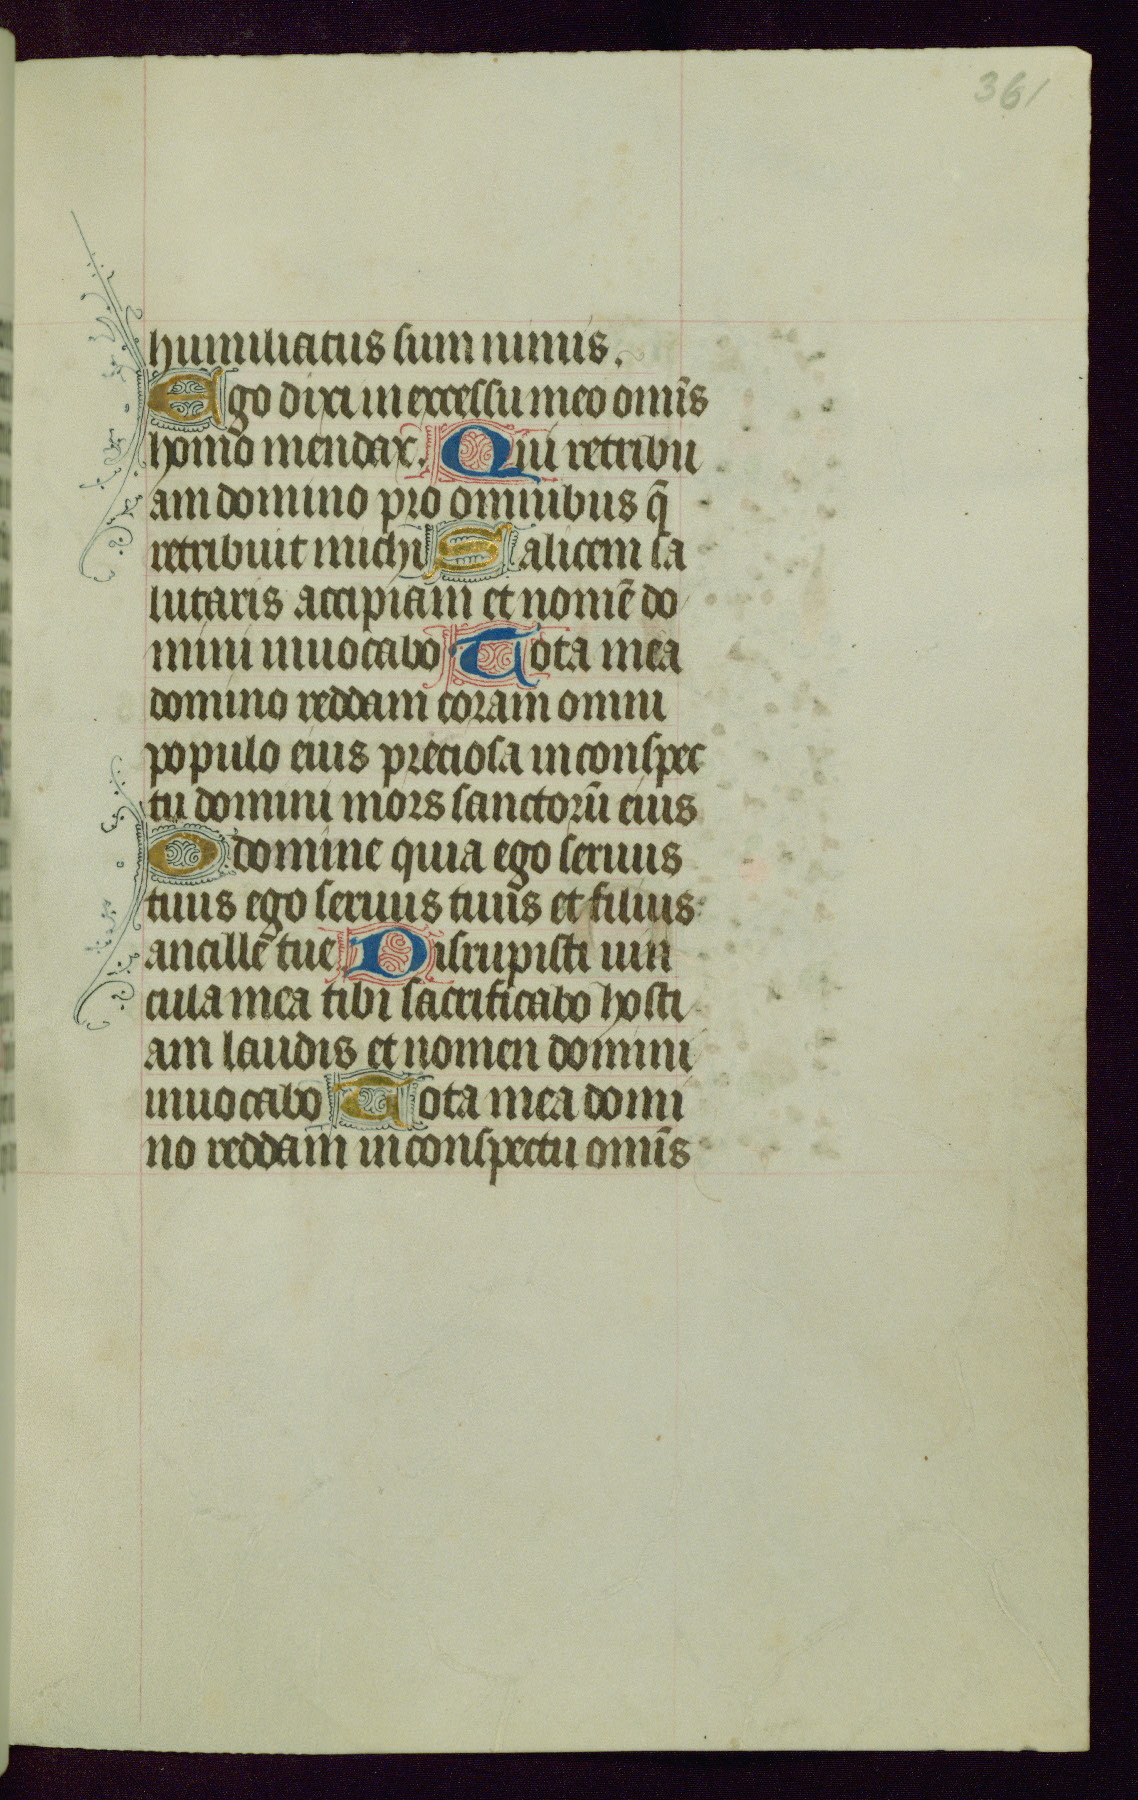 361
humiliatus sum nimis.
Ego dixi in excessu meo omīs
homo mendax. Qui retribu
am domino pro omnibus q̄
retribuit michi Salicem sa
lutaris accipiam et nomē do
mini inuocabo Uota mea
domino reddam coram omni
populo eius preciosa in conspec
tu domini mors sanctorū eius
O domine quia ego seruus
tuus ego seruus tuus et filius
ancille tue Disrupisti uin
cula mea tibi sacrificabo hosti
am laudis et nomen domini
inuocabo Uota mea domi
no reddam in conspectu omīs